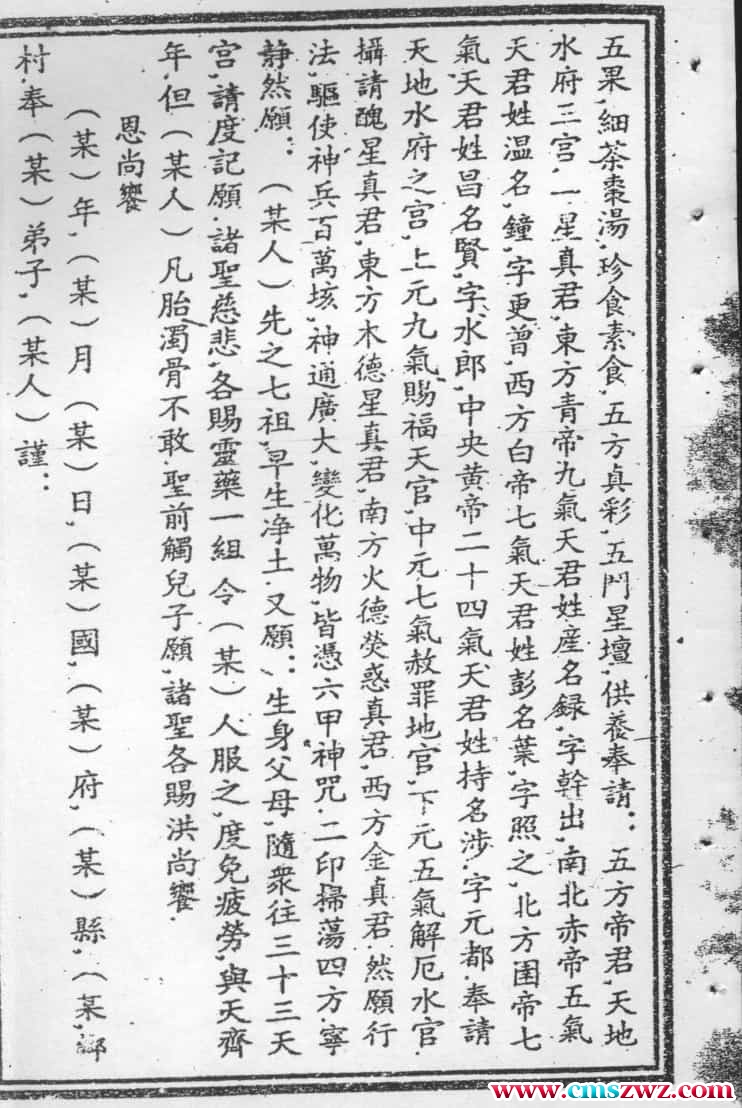 五果，細茶棗湯，珍食素食，五方真彩，五門星壇，供養奉請：五方帝君，天地
水府三宫．一星真君，東方青帝九氣天君姓産名録，字幹出，南北赤帝五氣
天君姓温名，鐘，字更曾，西方白帝七氣天君姓彭名葉，字照之，北方圉帝七
氣天君姓昌名賢，字，水郎，中央黄帝二十四氣天君姓持名涉．字元都．奉請
天地水府之宫，上元九氣賜福天官，中元七氣赦罪地官，下元五氣解厄水官．
攝請醜星真君，東方木德星真君，南方火德熒惑真君，西方金真君．然願行
法，驅使神兵百萬垓，神通廣大，變化萬物，皆憑六甲神咒．二印掃蕩四方．寧
静然願：（某人）先之七祖，早生净土．又願：、生身父母，隨衆往三十三天
宫，請度記願．諸聖慈悲，各賜靈藥一組 令（某）人服之，度免疲勞，與天齊
年，但（某人）凡胎濁骨不敢．聖前觸兒子願，諸聖各賜洪尚饗．
恩尚饗
（某）年，（某）月（某）日，（某）國，（某）府，（某）縣，（某，鄉
村．奉（某）弟子，（某人）謹：
www.cmszwz.com